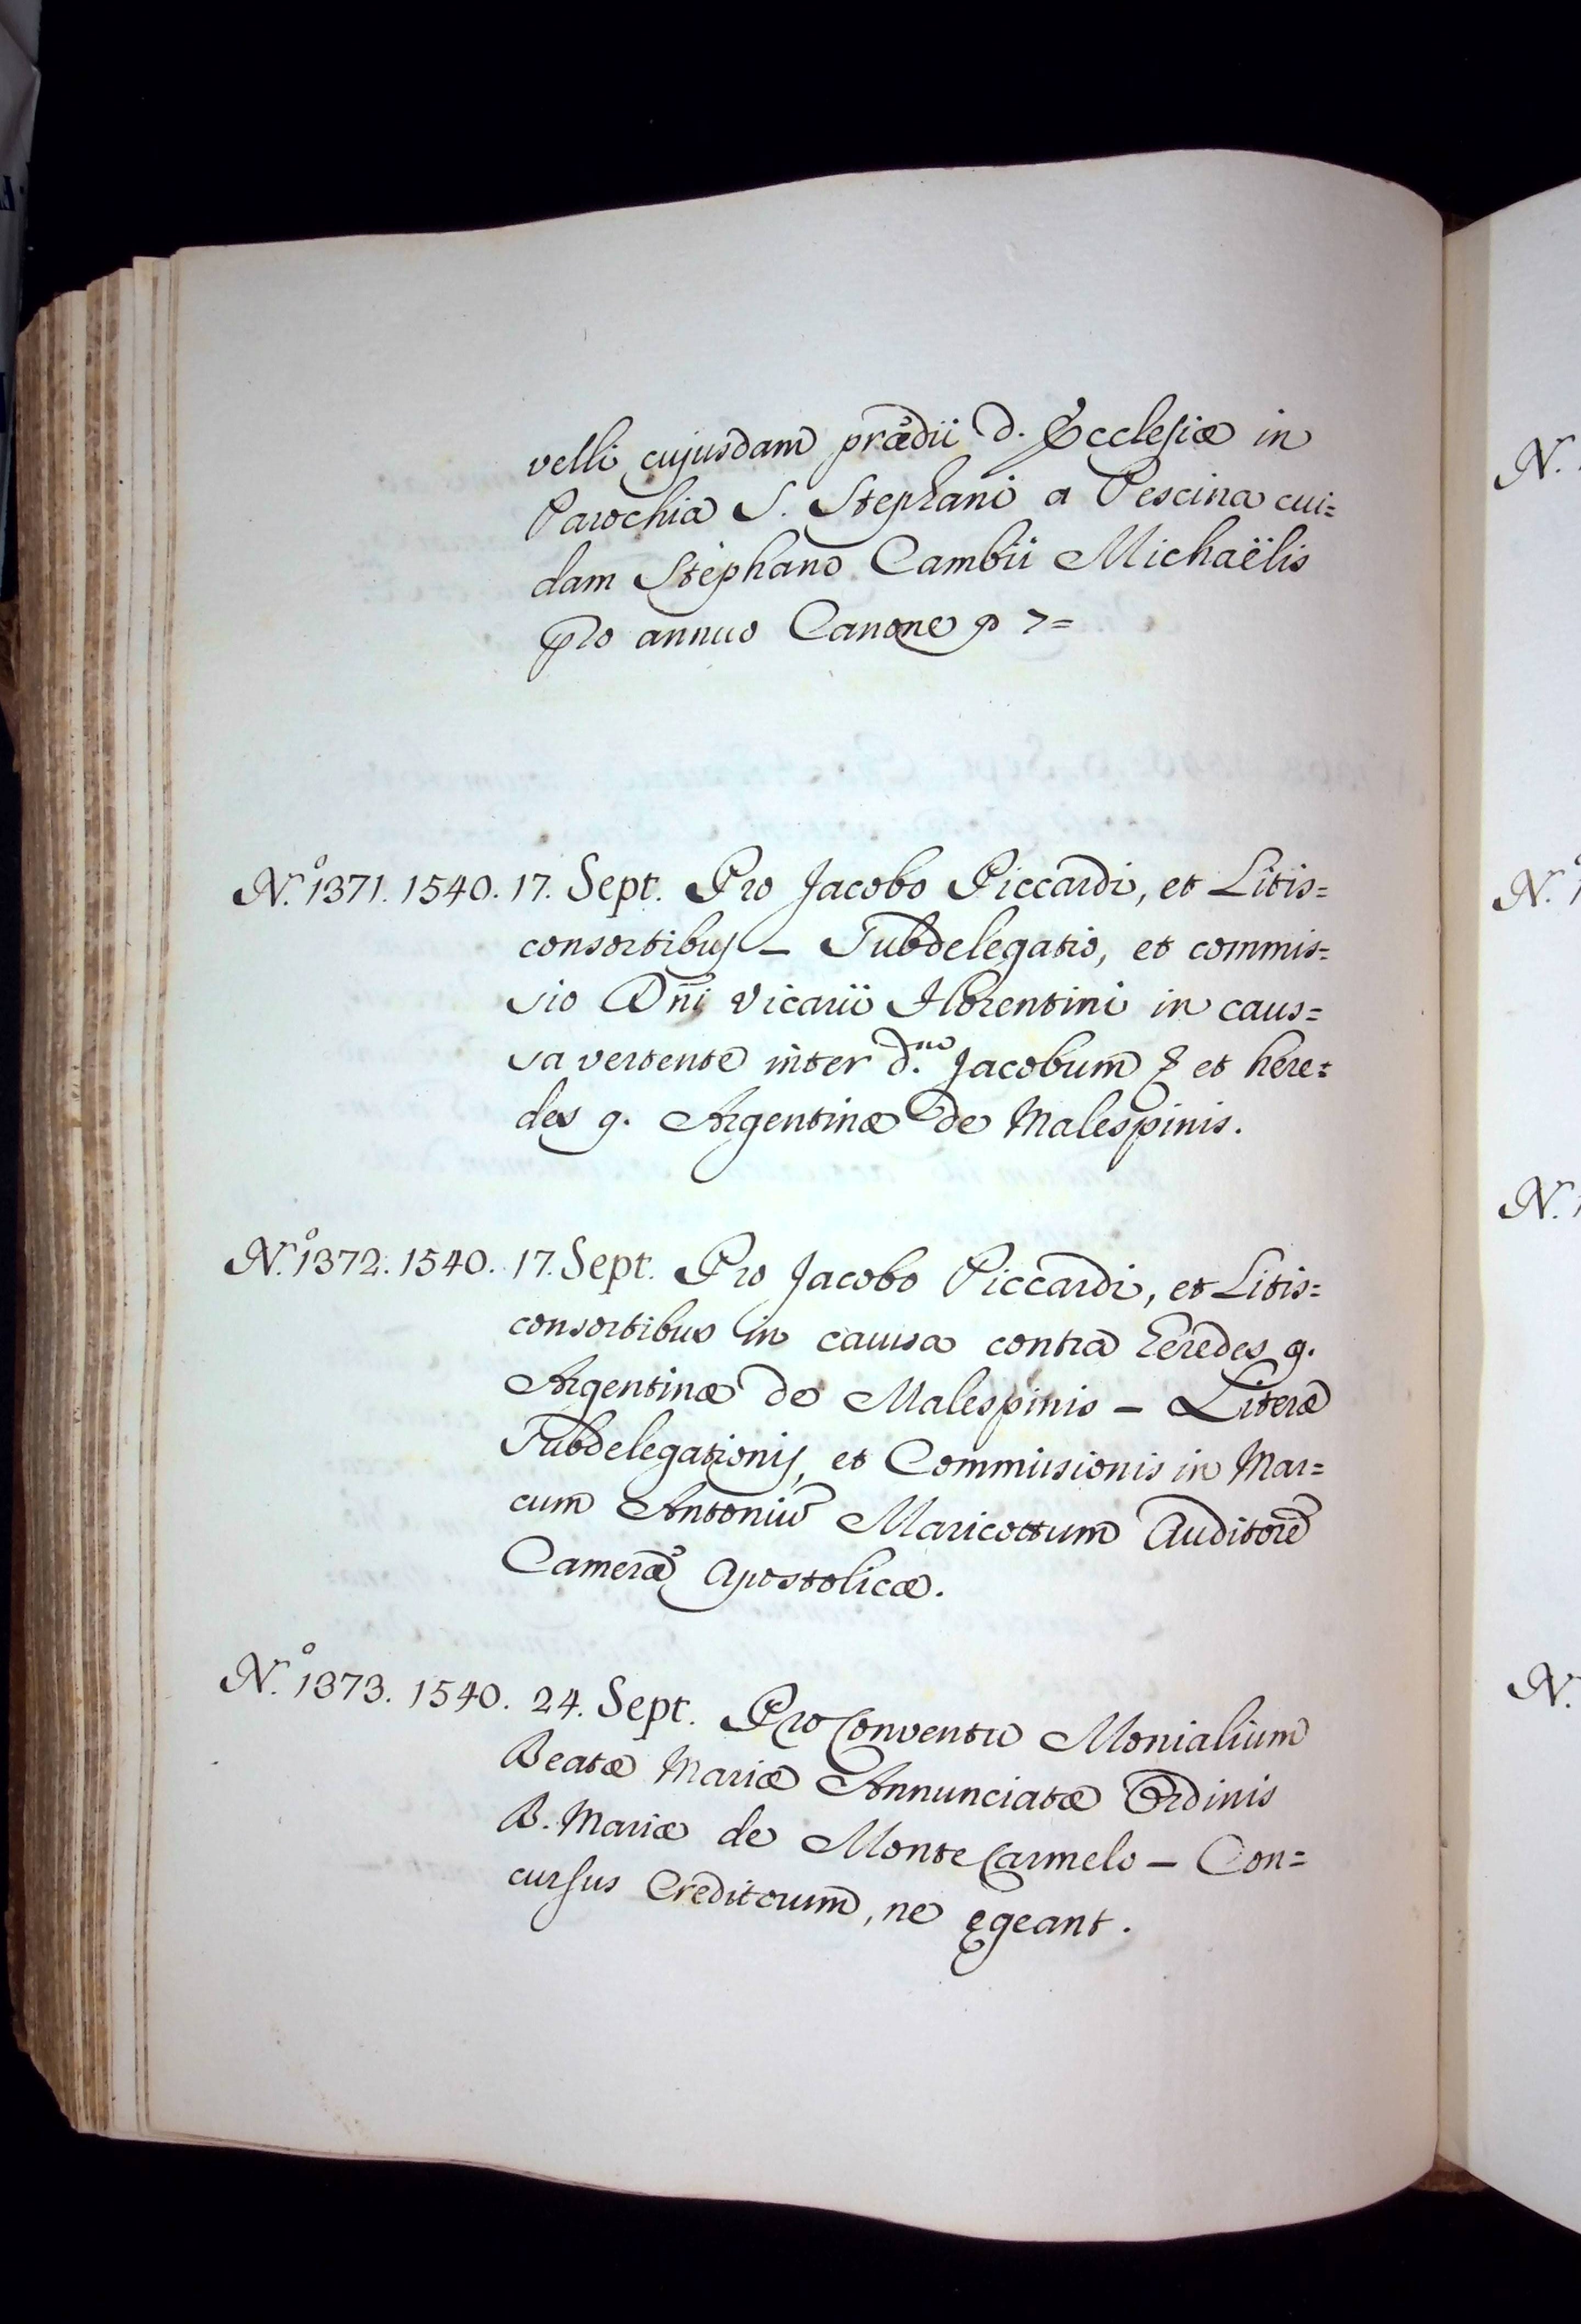 velli cujusdam prædii d. Ecclesiæ in
Parochia S. Stephani a Pescina cui=
dam Stephano Cambii Michaëlis
pro annuo Canone
N.º 1371. 1540. 17. Sept. Pro Jacobo Piccardi, et Litis=
consortibus – Subdelegatio, et commis=
sio Dñi Vicarii Florentini in caus=
sa vertente inter d.um Jacobum & et here=
des q. Argentinæ de Malespinis.
N.º 1372. 1540. 17. Sept. Pro Jacobo Piccardi, et Litis=
consortibus in causa contra heredes q.
Argentinæ de Malespinis – Literæ
Subdelegationis, et Commissionis in Mar=
cum Antoniũ Maricottum Auditorẽ
Cameræ Apostolicæ.
N.º 1373. 1540. 24. Sept. Pro Conventu Monialium
Beatæ Mariæ Annunciatæ Ordinis
B. Mariæ de Monte Carmelo – Con=
cursus Creditorum, ne egeant.
N.
N. 1
N. 1
N.